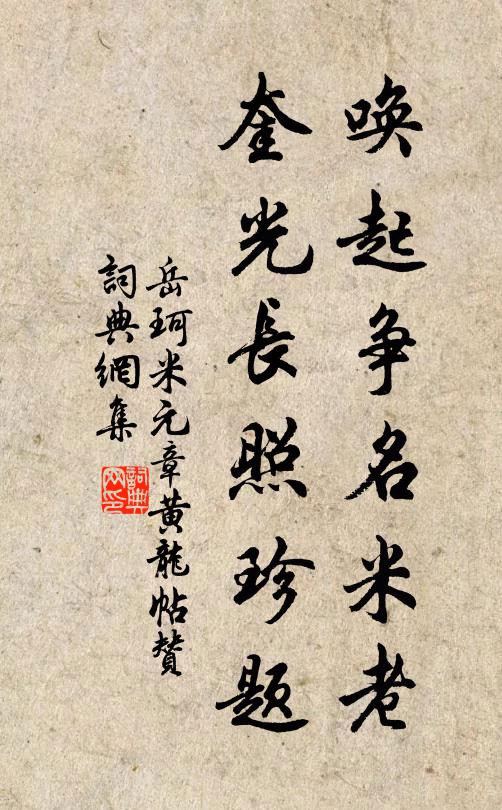 喚起争名米老
奎光長照珍題
岳珂米元章黄龍帖贊
詞典網集
詞典网印